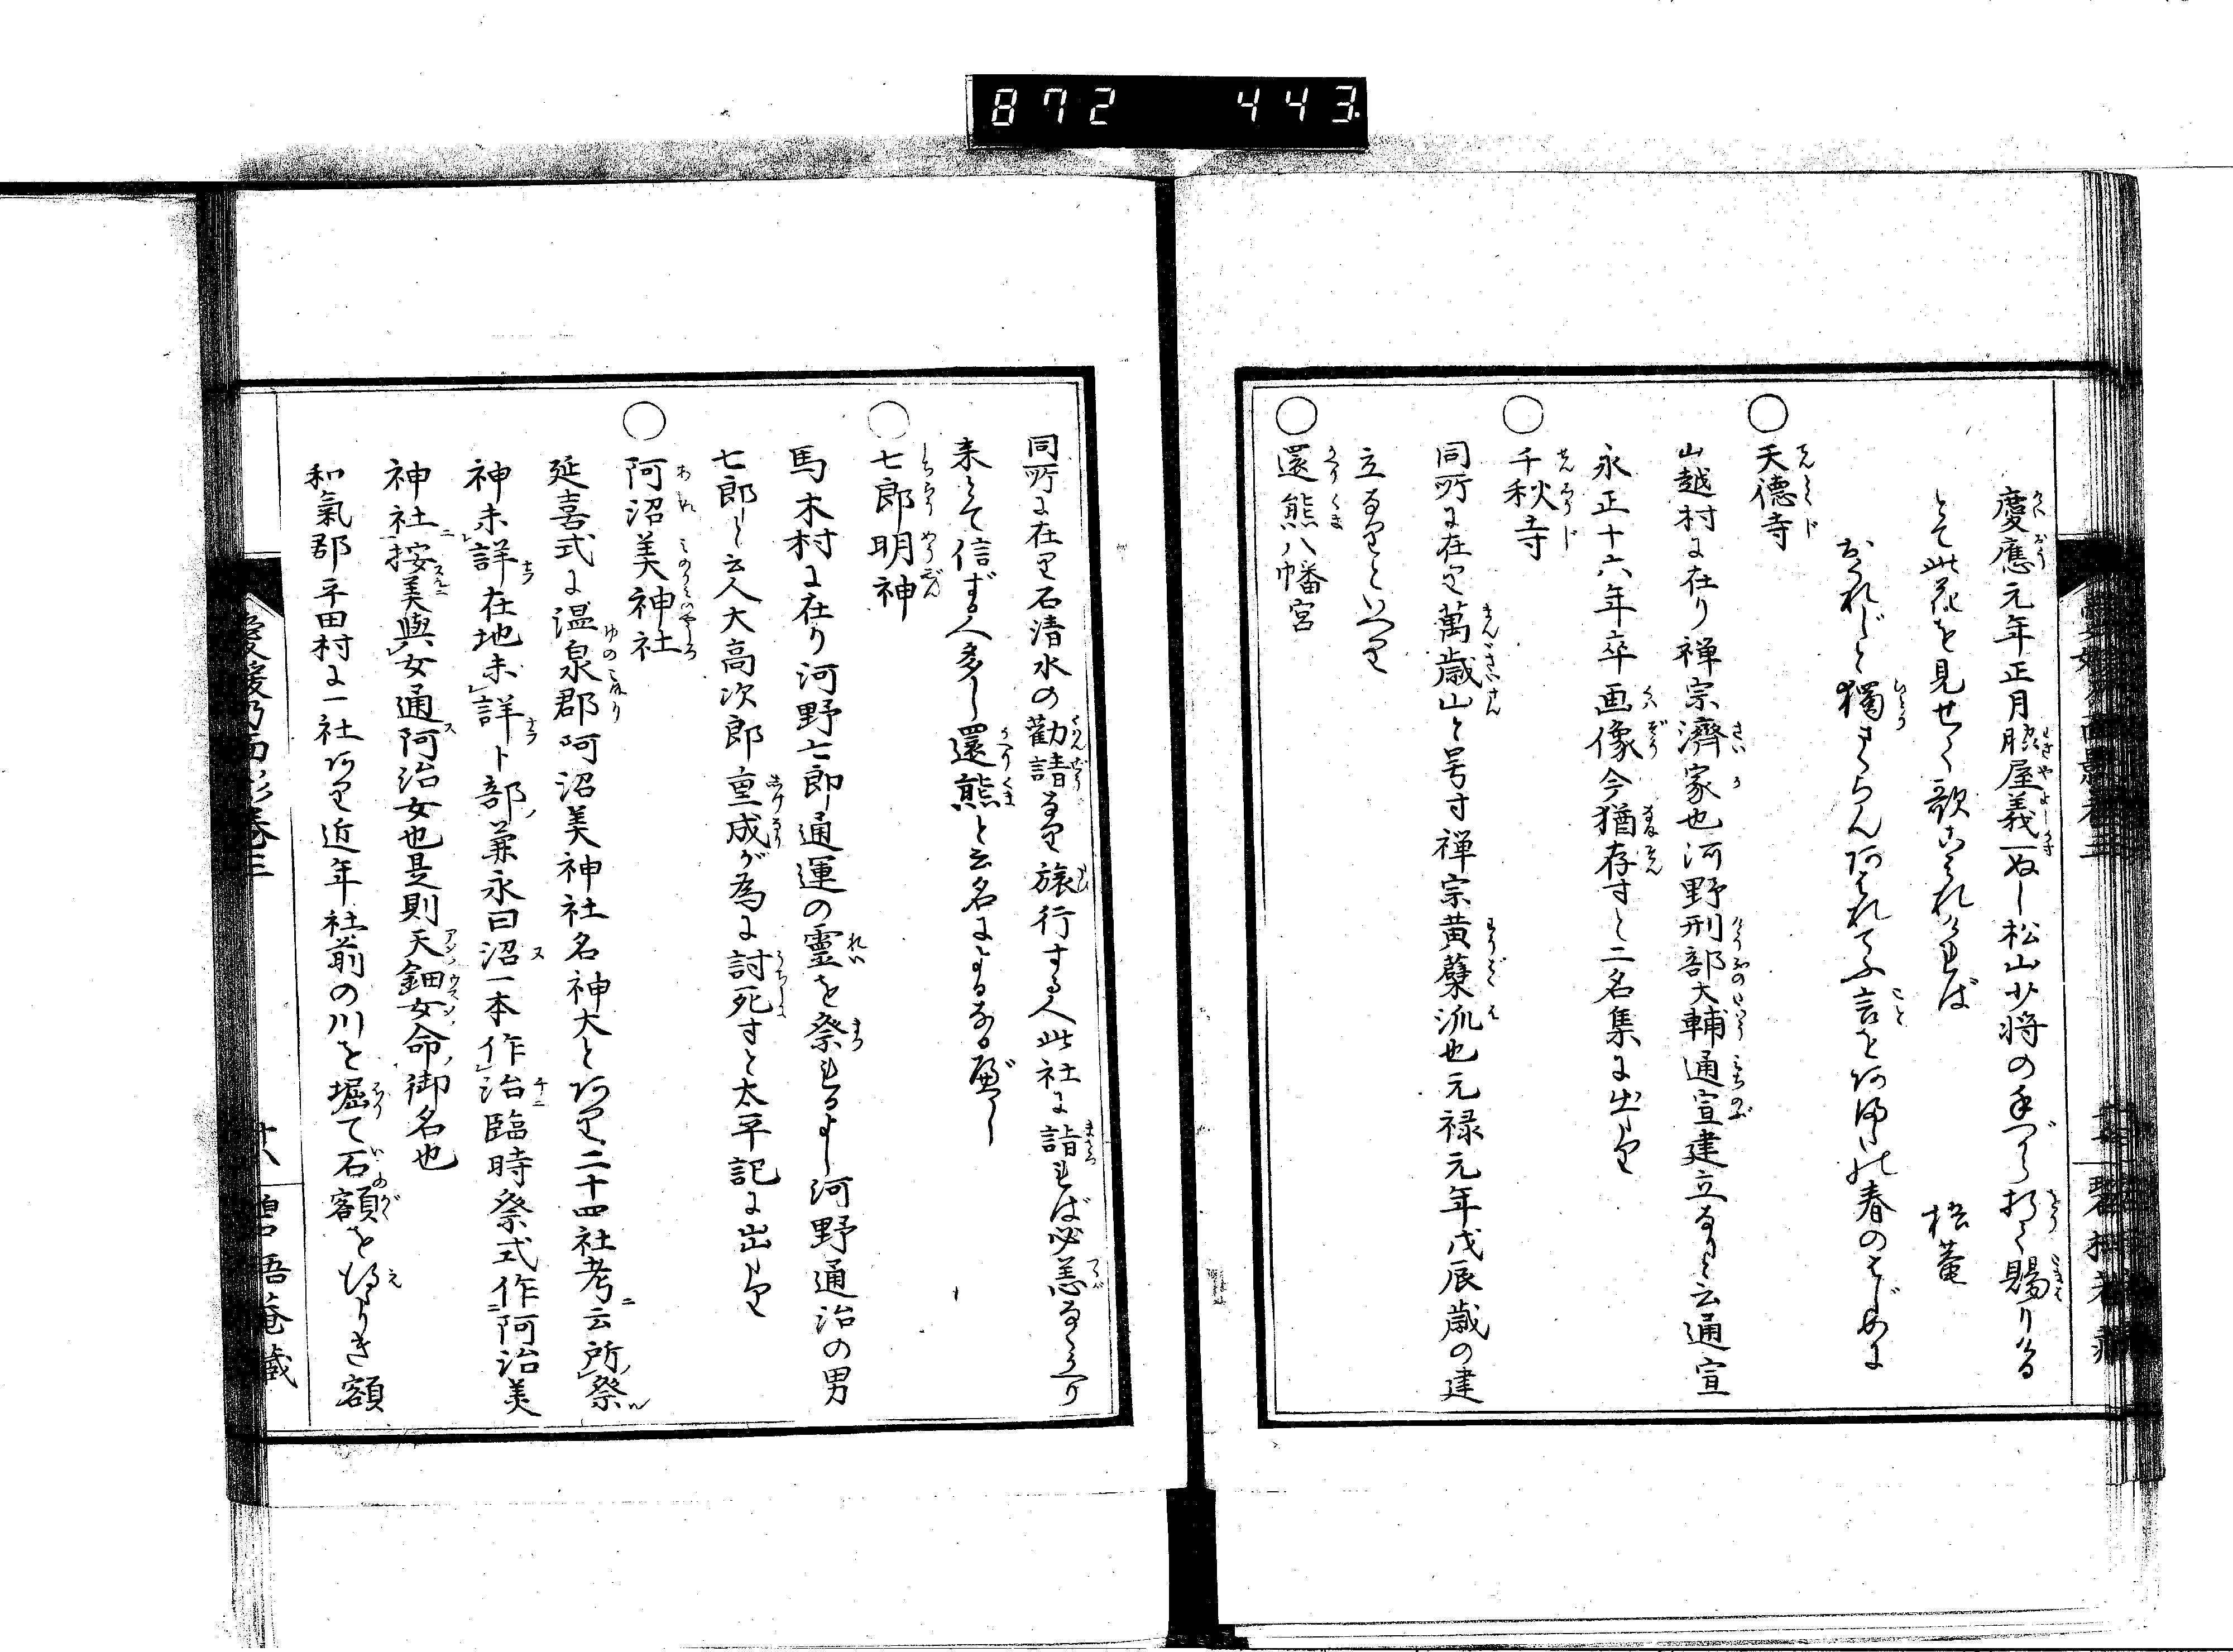 872 443
慶應元年正月脇屋義一ぬし松山少将の手づから折て賜りける
とて此花を見せて歌こはれければ
梧菴
おくれじと獨さくらん
言を
春のはじめに
○天徳寺
山越村に在り禅宗濟家也河野刑部大輔通宣建立なりと云通宣
永正十六年卒画像今猶存すと二名集に出たり
○千秋寺
同所に在り萬歳山と号す禅宗黄蘗派也元禄元年戊辰歳の建
立なりといへり
○還熊八幡宮
同所に在り石清水の勸請なり旅行する人此社に詣れば必恙なくかへり
来とて信ずる人多し還熊と云名によるなるべし
○七郎明神
馬木村に在り河野七郎通運の霊を祭れるよし河野通治の男
七郎と云人大高次郎重成が為に討死すと太平記に出たり
○阿沼美神社
延喜式に温泉郡阿沼美神社名神大とあり二十四社考ニ云所祭
神未詳在地未詳卜部兼永曰沼一本作治臨時祭式作阿治美
神社按美與女通阿治女也是則天鈿女命御名也
和氣郡平田村に一社あり近年社前の川を堀て石額を得たりき額
愛媛乃面影巻三
十八
碧梧菴蔵